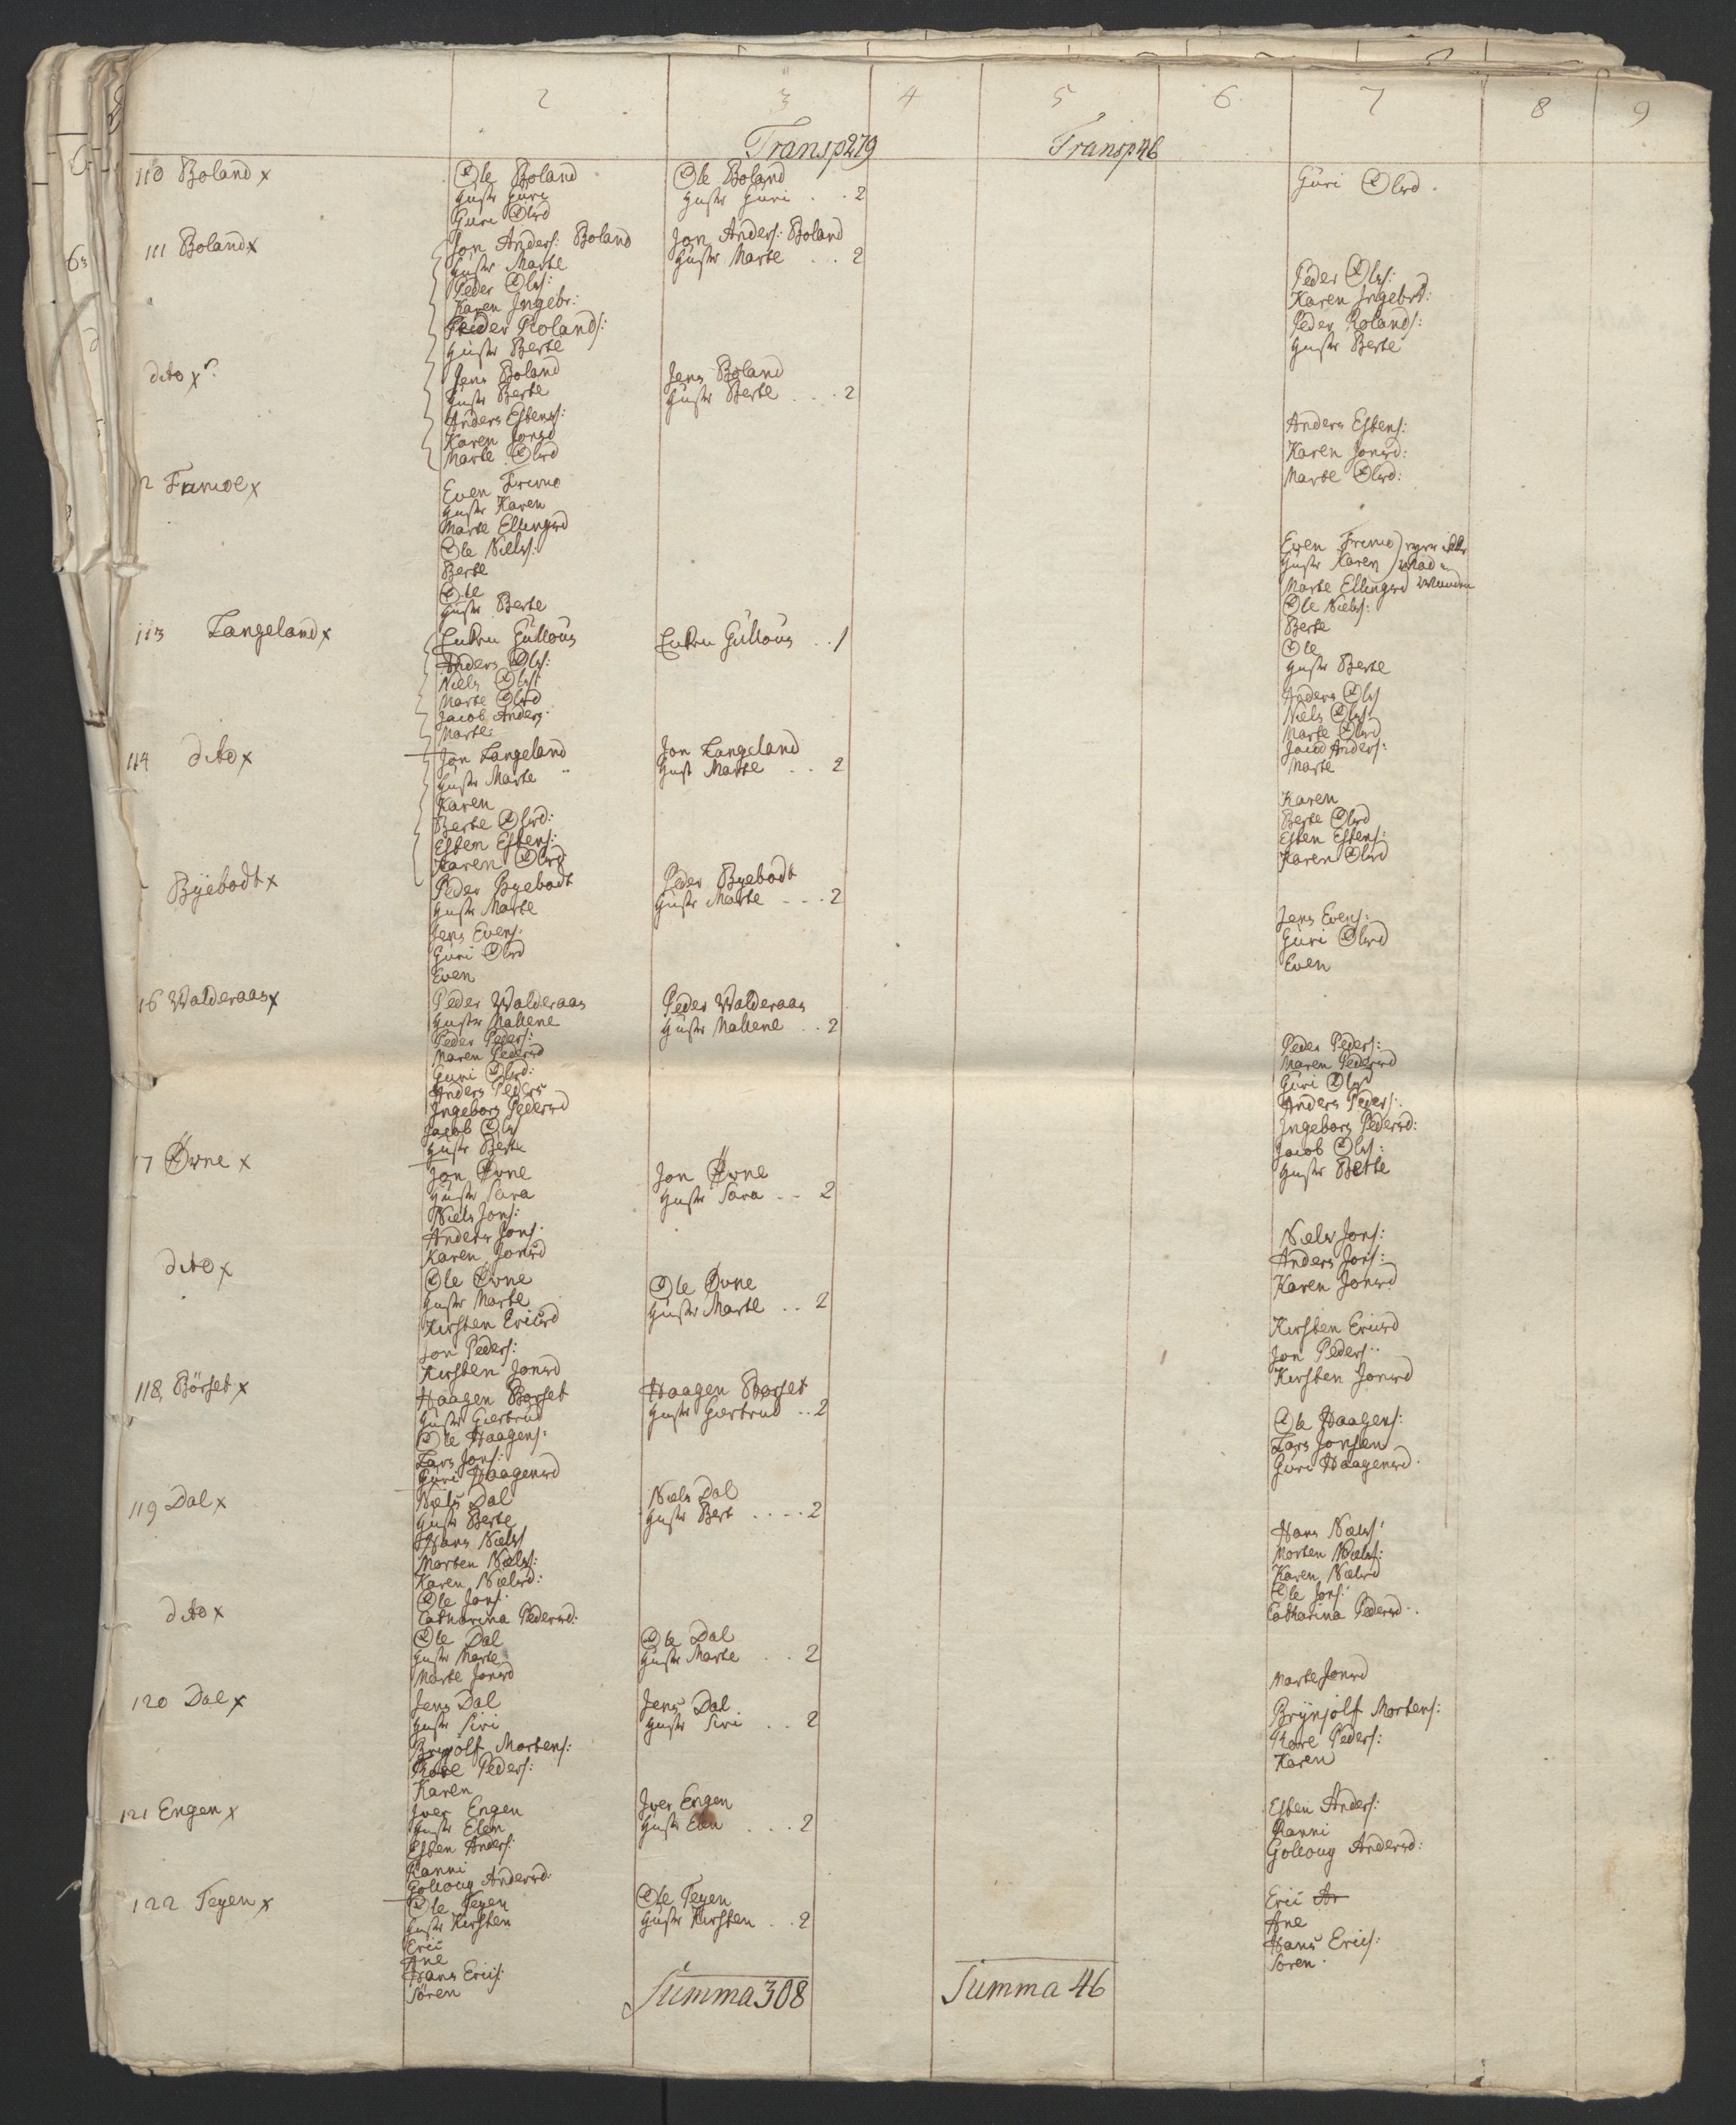 2 3 4 5 6 7 8 9
Transp 279 Transp 46
110 Boland x
Ole Boland
Hustr Guri
Guri Olsd
Ole Boland
Hustr Guri . . 2
Guri Olsd .
111 Boland x
Jon Anders: Boland
Hustr Marte
Peder Ols:
Karen Ingebr:
Peder Rolands:
Hustr Berte
Jon Anders: Boland
Hustr Marte . . 2
Peder Ols:
Karen Ingebrd:
Peder Rolands:
Hustr Berte
dito x
Jens Boland
Hustr Berte
Anders Estens:
Karen Jonsd
Marte Olsd
Jens Boland
Hustr Berte . . . 2
Anders Estens:
Karen Jonsd:
Marte Olsd:
2 Fremoe x
Even Fremo
Hustr Karen
Marte Ellingsd
Ole Niels:
Berte
Ole
Hustr Berte
Even Fremo
Hustr Karen
Marte Ellingsd
Ole Niels:
Berte
Ole
Hustr Berte
113 Langeland x
Enken Gulloug
Anders Ols:
Niels Ols:
Marte Olsd
Jacob Anders:
Marte
Enken Gulloug . . 1
Anders Ols
Niels Ols:
Marte Olsd
Jacob Anders:
Marte
114 dito x
Jon Langeland
Hustr Marte
Karen
Berte Olsd:
Esten Estens:
Karen Olsd
Jon Langeland
Hust Marte . . 2
Karen
Berte Olsd
Esten Estens:
Karen Olsd
Byebodt x
Peder Byebodt
Hustr Marte
Jens Evens:
Guri Olsd
Even
Peder Byebodt
Hustr Marte - - . 2
Jens Evens:
Guri Olsd
Even
16 Walderaas x
Peder Walderaas
Hustr Malene
Peder Peders:
Maren Pedersd
Guri Olsd:
Anders Peders
Ingebor Pedersd
Jacob Ols
Hustr Berte
Peder Walderaas
Hustr Malene . . 2
Peder Peders:
Maren Pedersd
Guri Olsd
Anders Peders:
Ingebor Pedersd:
Jacob Ols:
Hustr Berte
17 Øvne x
Jon Øvne
Hustr Sara
Niels Jons:
Anders Jons:
Karen Jonsd
Jon Øvne
Hustr Sara - - 2
Niels Jons:
Anders Jons:
Karen Jonsd
dito x
Ole Øvne
Hustr Marte
Kirsten Ericsd
Jon Peders:
Kirsten Jonsd
Ole Øvne
Hustr Marte . . 2
Kirsten Ericsd
Jon Peders:
Kirsten Jonsd
118, Börset x
Haagen Börset
Hustr Giertrud
Ole Haagens:
Lars Jons:
Guri Haagensd
Haagen Börset
Hustr Giertrud . . 2
Ole Haagens:
Lars Jonsen
Guri Haagensd.
119 Dal x
Niels Dal
Hustr Berte
Hans Niels
Morten Niels:
Karen Nielsd:
Ole Jons:
Catharina Pedersd:
Niels Dal
Hustr Bert . . . . 2
Hans Niels:
Morten Niels:
Karen Nielsd
Ole Jons:
Catharina Pedersd.
dito x
Ole Dal
Hustr Marte
Marte Jonsd
Ole Dal
Hustr Marte . . 2
Marte Jonsd
120 Dal x
Jens Dal
Hustr Siri
Brynjolf Mortens:
Tore Peders:
Karen
Jens Dal
Hustr Siri . . 2
Brynjolf Mortens:
Tore Peders:
Karen
121 Engen x
Iver Engen
Hustr Elen
Esten Anders:
Ranni
Golloug Andersd:
Iver Engen
Hustr Elen . . . 2
Esten Anders:
Ranni
Golloug Andersd:
122 Teyen x
Ole Teyen
Hustr Kirsten
Eric
Ane
Hans Erics:
Sören
Ole Teyen
Hustr Kirsten . . 2
Eric An
Ane
Hans Erics:
Sören
Summa 308 Summa 46